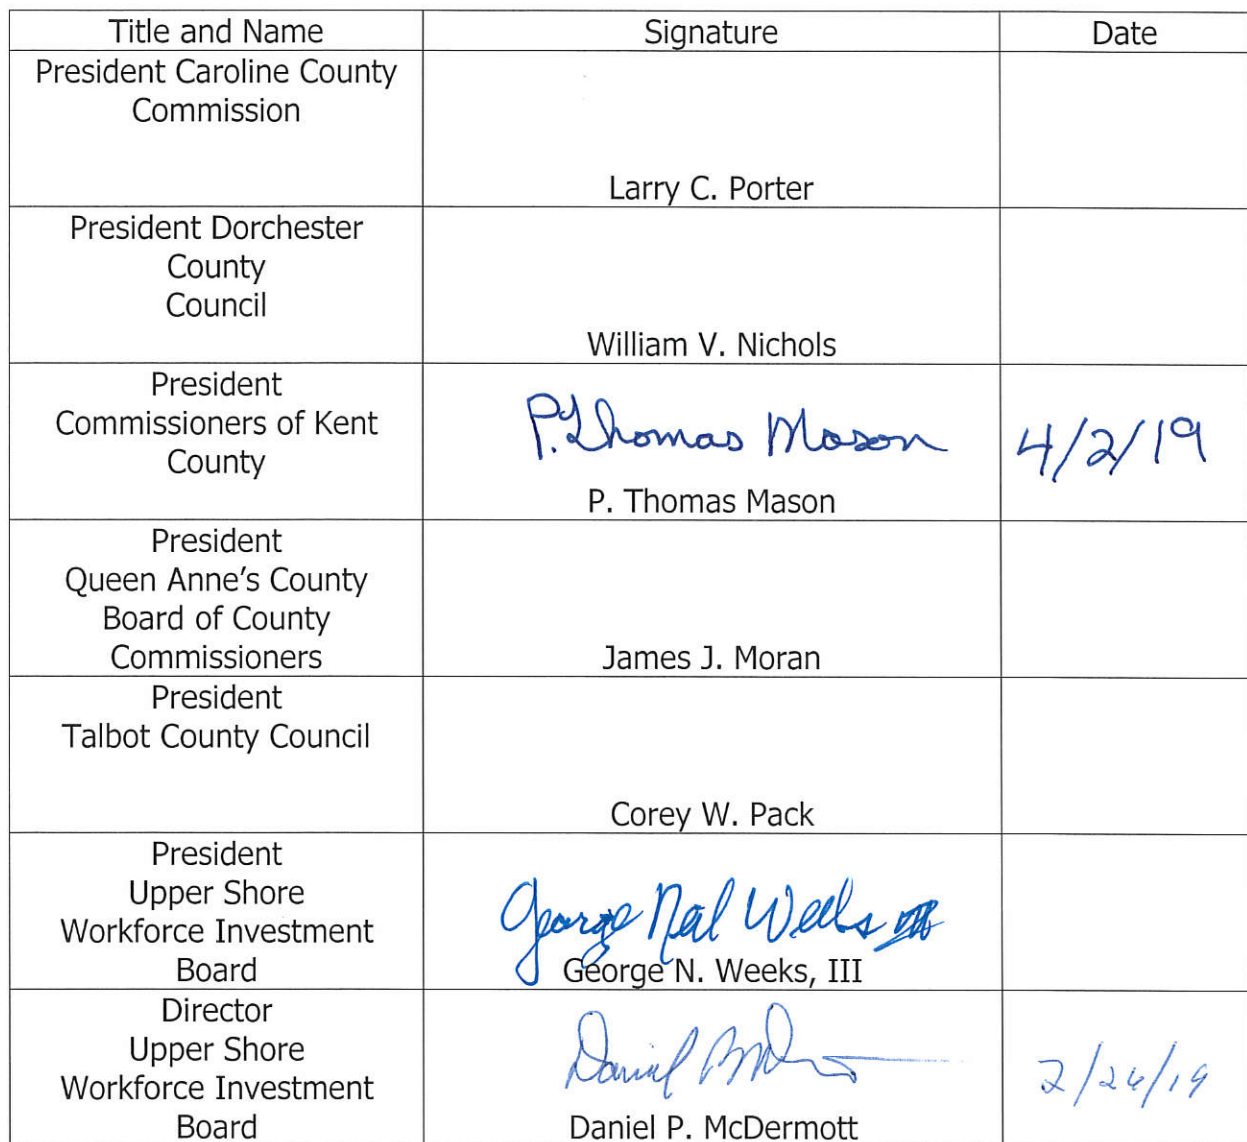 Title and Name Signature Date
President Caroline County
Commission
Larry C. Porter
President Dorchester
County
Council
William V. Nichols
President
Commissioners of Kent
County
P. Thomas Mason 4/2/19
P. Thomas Mason
President
Queen Anne's County
Board of County
Commissioners
James J. Moran
President
Talbot County Council
Corey W. Pack
President
Upper Shore
Workforce Investment
Board
George Neal Weeks III
George N. Weeks, III
Director
Upper Shore
Workforce Investment
Board
Daniel 2/26/19
Daniel P. McDermott